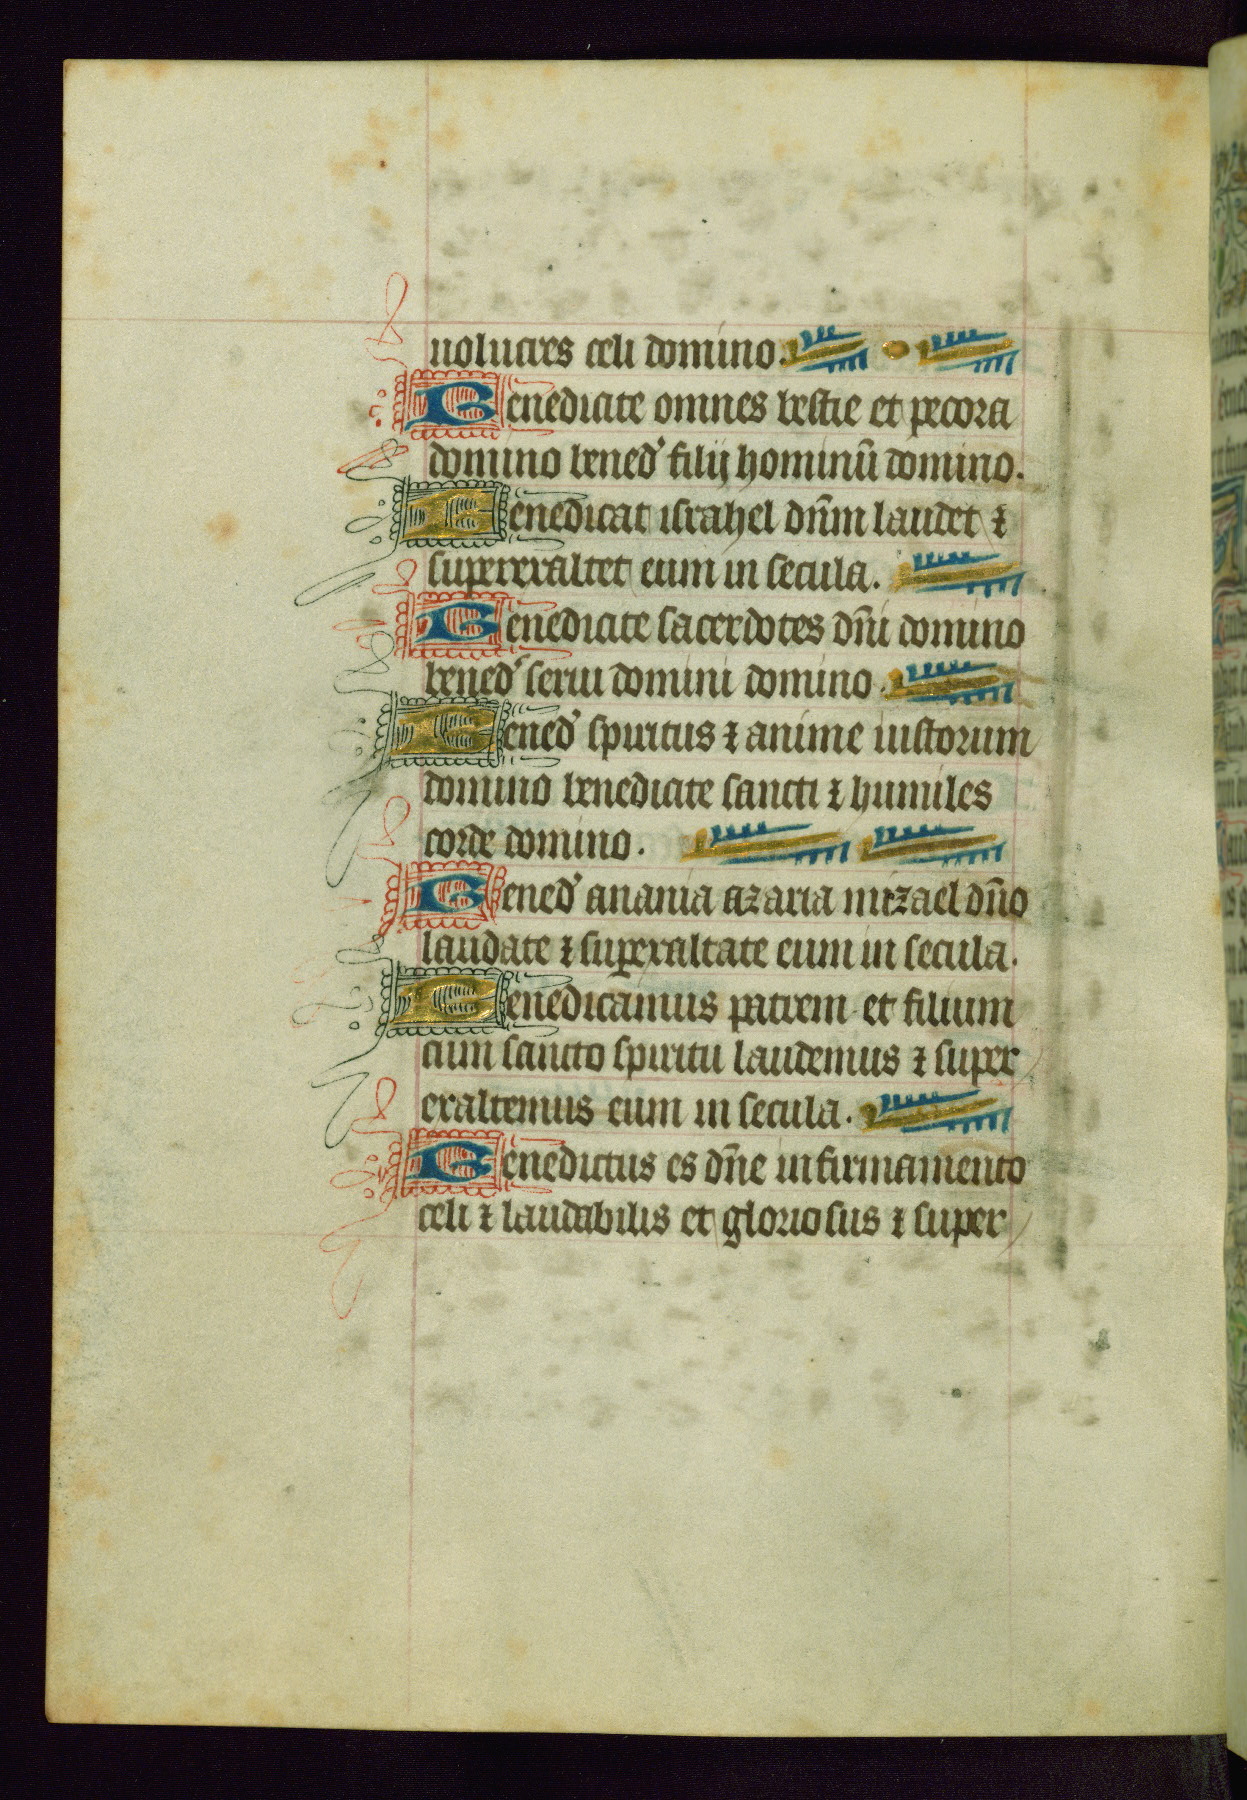 uolucres celi domino.
Benedicite omnes bestie et pecora
domino bened̾ filij hominū domino.
Benedicat israhel dn̄m laudet ⁊
superexaltet eum in secula.
Benedicite sacerdotes dn̄i domino
bened̾ serui domini domino.
Bened̾ spiritus ⁊ anime iustorum
domino benedicite sancti ⁊ humiles
corde domino.
Bened̾ anania azaria mizael dn̄o
laudate ⁊ superaltate eum in secula.
Benedicamus patrem et filium
cum sancto spiritu laudemus ⁊ super
exaltemus eum in secula.
Benedictus es dn̄e in firmamento
celi ⁊ laudabilis et gloriosus ⁊ super